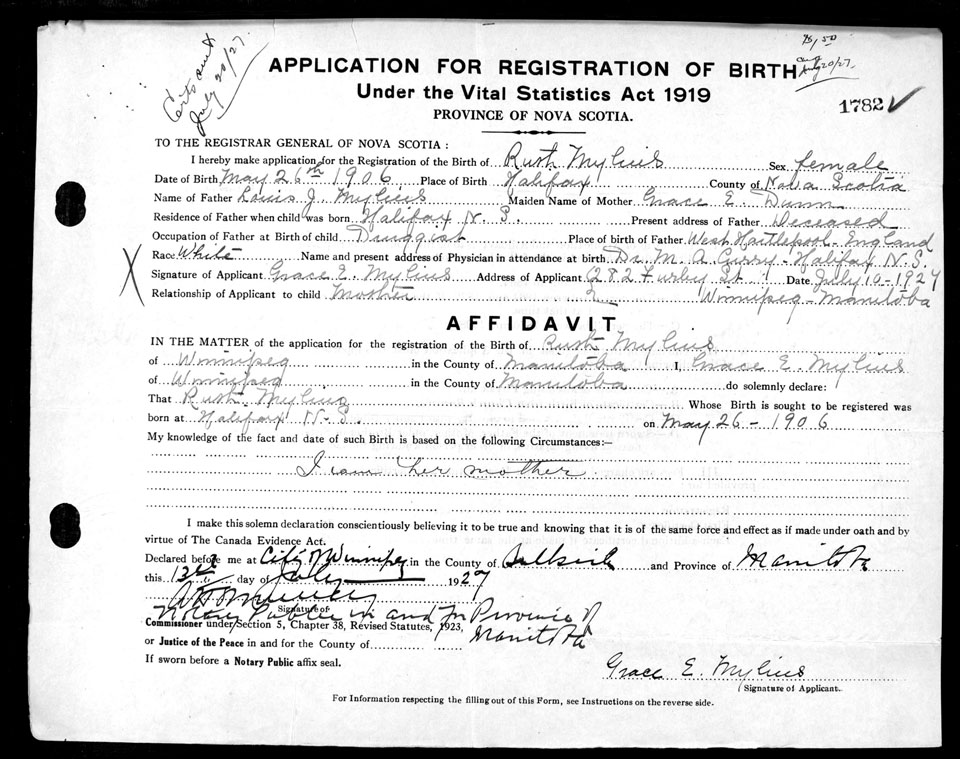 Certs sent
July 20/27
$1.50
Aug
July 20/27.
1782 ✓
APPLICATION FOR REGISTRATION OF BIRTH
Under the Vital Statistics Act 1919
PROVINCE OF NOVA SCOTIA.
TO THE REGISTRAR GENERAL OF NOVA SCOTIA :
I hereby make application for the Registration of the Birth of Ruth Mylius Sex female
Date of Birth May 26th 1906. Place of Birth Halifax County of Nova Scotia
Name of Father Louis J. Mylius Maiden Name of Mother Grace E. Dunn
Residence of Father when child was born Halifax N. S. Present address of Father Deceased
Occupation of Father at Birth of child Druggist Place of birth of Father West Hartlepool - England
Race White Name and present address of Physician in attendance at birth Dr. M. A. Curry - Halifax N. S.
X Signature of Applicant Grace E. Mylius Address of Applicant 282 Furby St. Date July 10 - 1927
Relationship of Applicant to child Mother Winnipeg - Manitoba
AFFIDAVIT
IN THE MATTER of the application for the registration of the Birth of Ruth Mylius
of Winnipeg in the County of Manitoba I, Grace E. Mylius
of Winnipeg in the County of Manitoba do solemnly declare:
That Ruth Mylius Whose Birth is sought to be registered was
born at Halifax N. S. on May 26 - 1906
My knowledge of the fact and date of such Birth is based on the following Circumstances:—
I am her mother.
I make this solemn declaration conscientiously believing it to be true and knowing that it is of the same force and effect as if made under oath and by
virtue of The Canada Evidence Act.
Declared before me at City of Winnipeg in the County of Selkirk and Province of Manitoba
this 13th day of July 1927
Signature of
Notary Public in and for Province of
Commissioner under Section 5, Chapter 38, Revised Statutes, 1923, Manitoba
or Justice of the Peace in and for the County of
If sworn before a Notary Public affix seal.
Grace E. Mylius
Signature of Applicant.
For Information respecting the filling out of this Form, see Instructions on the reverse side.